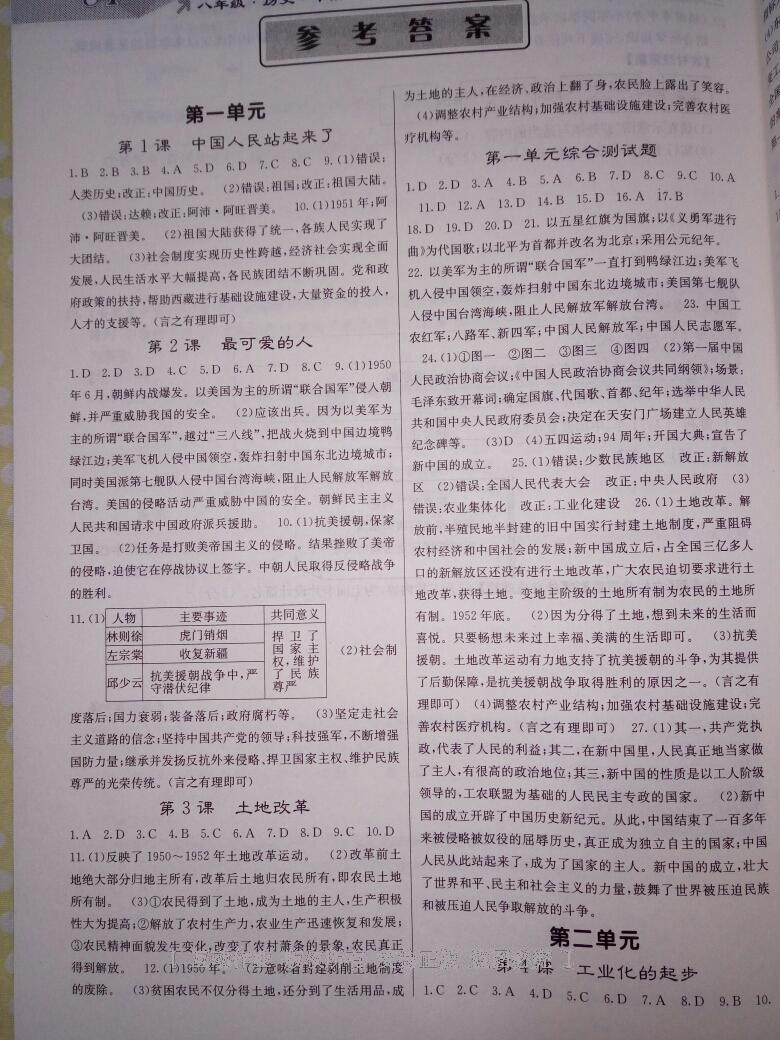 八年级·历史
参考答案
第一单元
第1课 中国人民站起来了
1.B 2.B 3.B 4.A 5.D 6.D 7.C 8.C 9.(1)错误;
人类历史;改正:中国历史。 (2)错误:祖国;改正:祖国大陆。
(3)错误:达赖;改正:阿沛·阿旺晋美。 10.(1)1951年;阿
沛·阿旺晋美。 (2)祖国大陆获得了统一,各族人民实现了
大团结。 (3)社会制度实现历史性跨越,经济社会实现全面
发展,人民生活水平大幅提高,各民族团结不断巩固。党和政
府政策的扶持,帮助西藏进行基础设施建设,大量资金的投入,
人才的支援等。(言之有理即可)
第2课 最可爱的人
1.D 2.D 3.D 4.C 5.D 6.A 7.D 8.C 9.(1)1950
年6月,朝鲜内战爆发。以美国为主的所谓“联合国军”侵入朝
鲜,并严重威胁我国的安全。 (2)应该出兵。因为以美军为
主的所谓“联合国军”,越过“三八线”,把战火烧到中国边境鸭
绿江边;美军飞机入侵中国领空,轰炸扫射中国东北边境城市;
同时美国派第七舰队入侵中国台湾海峡,阻止人民解放军解放
台湾。美国的侵略活动严重威胁中国的安全。朝鲜民主主义
人民共和国请求中国政府派兵援助。 10.(1)抗美援朝,保家
卫国。 (2)任务是打败美帝国主义的侵略。结果挫败了美帝
的侵略,迫使它在停战协议上签字。中朝人民取得反侵略战争
的胜利。
11.(1) 人物 主要事迹 共同意义
林则徐 虎门销烟 捍卫了国家主权,维护了民族尊严
左宗棠 收复新疆
邱少云 抗美援朝战争中,严守潜伏纪律
(2)社会制
度落后;国力衰弱;装备落后;政府腐朽等。 (3)坚定走社会
主义道路的信念;坚持中国共产党的领导;科技强军,不断增强
国防力量;继承并发扬反抗外来侵略、捍卫国家主权、维护民族
尊严的光荣传统。(言之有理即可)
第3课 土地改革
1.A 2.D 3.C 4.B 5.C 6.A 7.D 8.D 9.C 10.D
11.(1)反映了1950～1952年土地改革运动。 (2)改革前土
地绝大部分归地主所有,改革后土地归农民所有,即农民土地
所有制。 (3)①农民得到了土地,成为土地的主人,生产积极
性大为提高;②解放了农村生产力,农业生产迅速恢复和发展;
③农民精神面貌发生变化,改变了农村萧条的景象,农民真正
得到解放。 12.(1)1950年。 (2)意味着封建剥削土地制度
的废除。 (3)贫困农民不仅分得土地,还分到了生活用品,成
为土地的主人,在经济、政治上翻了身,农民脸上露出了笑容。
(4)调整农村产业结构;加强农村基础设施建设;完善农村医
疗机构等。
第一单元综合测试题
1.D 2.D 3.A 4.B 5.A 6.B 7.D 8.C 9.C 10.A
11.D 12.A 13.D 14.B 15.D 16.A 17.B
18.D 19.D 20.D 21. 以五星红旗为国旗;以《义勇军进行
曲》为代国歌;以北平为首都并改名为北京;采用公元纪年。
22. 以美军为主的所谓“联合国军”一直打到鸭绿江边;美军飞
机入侵中国领空,轰炸扫射中国东北边境城市;美国第七舰队
入侵中国台湾海峡,阻止人民解放军解放台湾。 23. 中国工
农红军;八路军、新四军;中国人民解放军;中国人民志愿军。
24.(1)①图一 ②图二 ③图三 ④图四 (2)第一届中国
人民政治协商会议;《中国人民政治协商会议共同纲领》;场景:
毛泽东致开幕词;确定国旗、代国歌、首都、纪年;选举中华人民
共和国中央人民政府委员会;决定在天安门广场建立人民英雄
纪念碑等。 (3)D (4)五四运动;94周年;开国大典;宣告了
新中国的成立。 25.(1)错误:少数民族地区 改正:新解放
区 (2)错误:全国人民代表大会 改正:中央人民政府 (3)
错误:农业集体化 改正:工业化建设 26.(1)土地改革。解
放前,半殖民地半封建的旧中国实行封建土地制度,严重阻碍
农村经济和中国社会的发展;新中国成立后,占全国三亿多人
口的新解放区还没有进行土地改革,广大农民迫切要求进行土
地改革,获得土地。变地主阶级的土地所有制为农民的土地所
有制。1952年底。 (2)因为分得了土地,想到未来的生活而
喜悦。只要畅想未来过上幸福、美满的生活即可。 (3)抗美
援朝。土地改革运动有力地支持了抗美援朝的斗争,为其提供
了后勤保障,是抗美援朝战争取得胜利的原因之一。(言之有
理即可) (4)调整农村产业结构;加强农村基础设施建设;完
善农村医疗机构。(言之有理即可) 27.(1)其一,共产党执
政,代表了人民的利益;其二,在新中国里,人民真正地当家做
了主人,有很高的政治地位;其三,新中国的性质是以工人阶级
领导的,工农联盟为基础的人民民主专政的国家。 (2)新中
国的成立开辟了中国历史新纪元。从此,中国结束了一百多年
来被侵略被奴役的屈辱历史,真正成为独立自主的国家;中国
人民从此站起来了,成为了国家的主人。新中国的成立,壮大
了世界和平、民主和社会主义的力量,鼓舞了世界被压迫民族
和被压迫人民争取解放的斗争。
第二单元
第4课 工业化的起步
1.C 2.C 3.A 4.D 5.C 6.D 7.A 8.D 9.B 10.